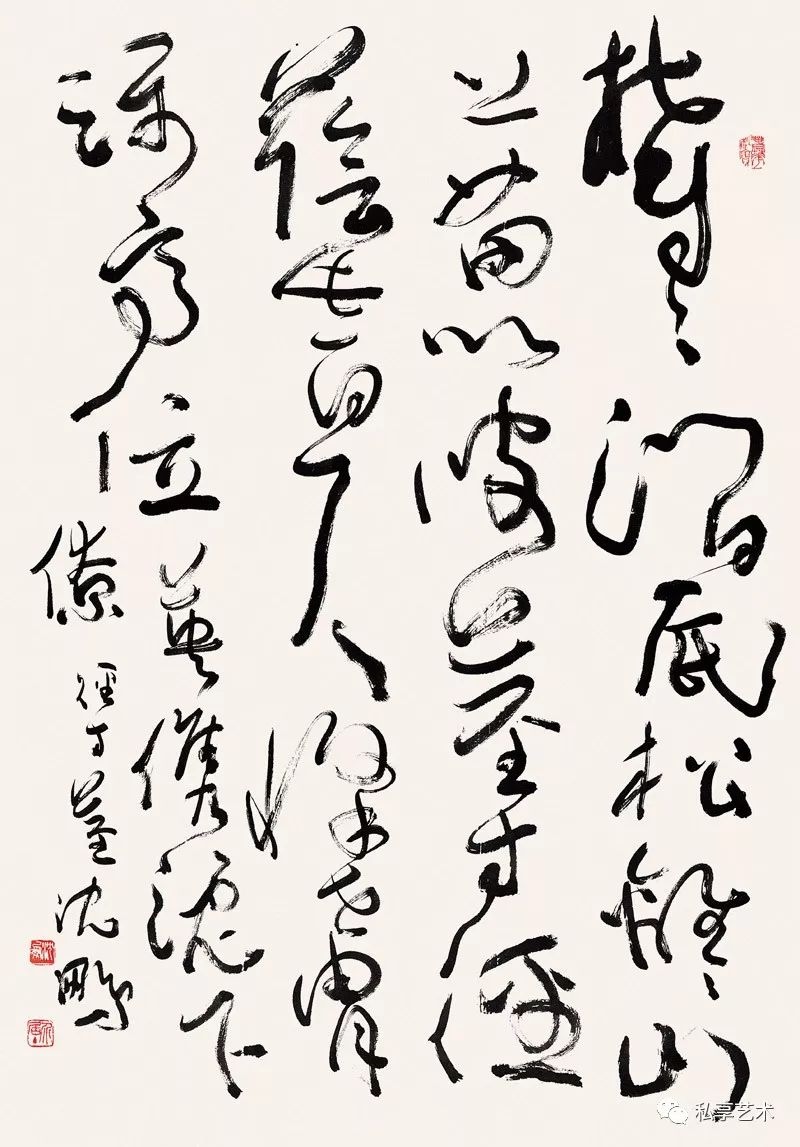 欝〻澗底松離〻山
上苗以彼莖寸徑
蔭此百尺條世冑
躡高位英儁沈下
僚
徑寸莖 沈鵬
私享艺术